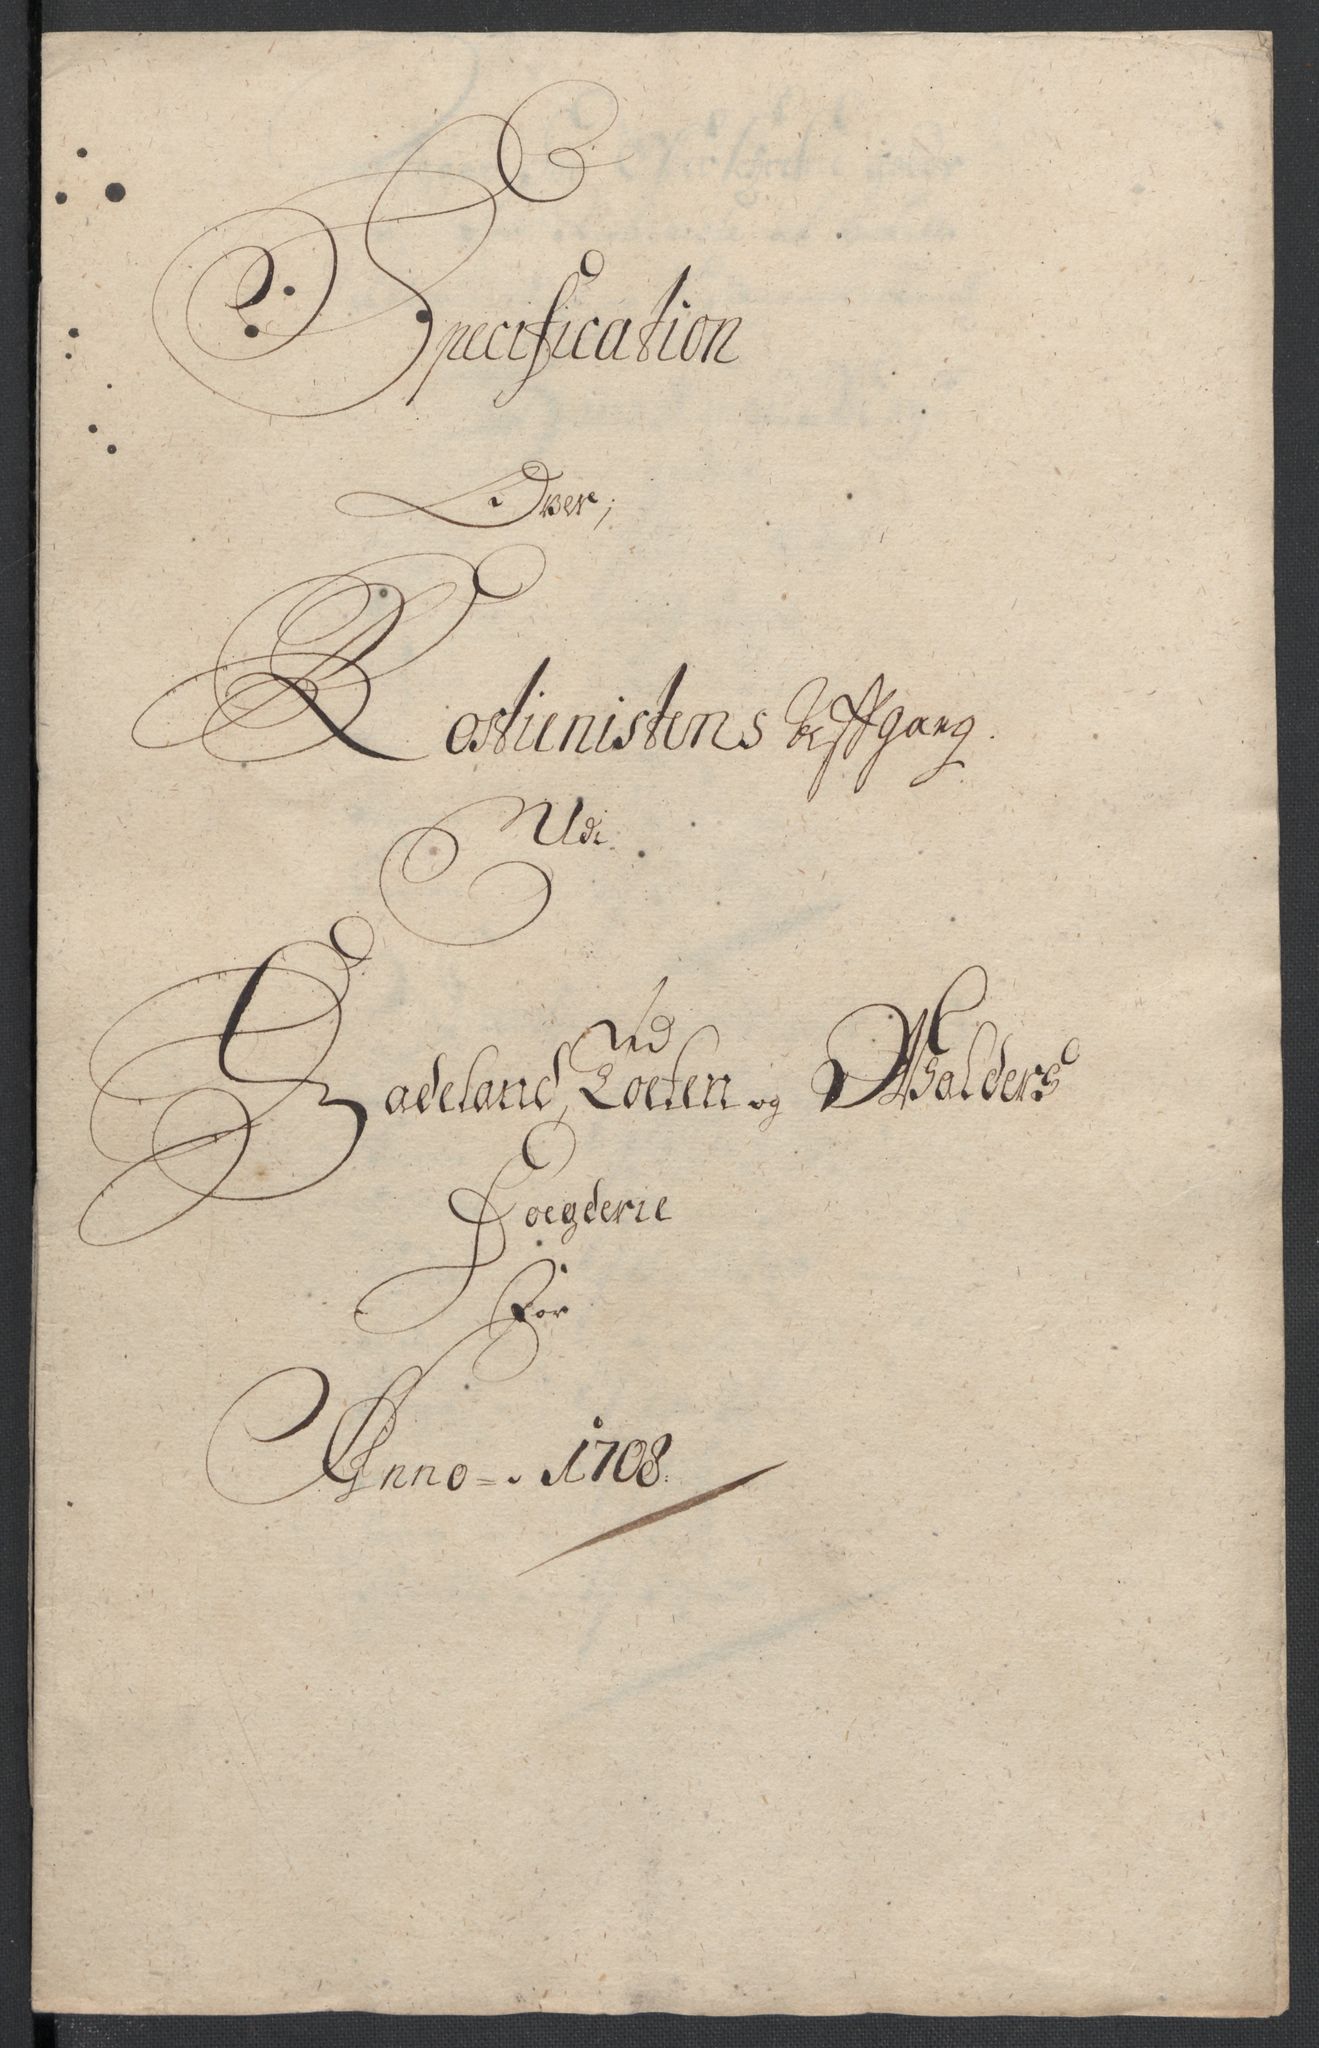 Specification
Over,
Rostienistens Affgang.
Udi
Hadeland, Toeten og Walders
Foegderie
For
Anno - 1708.